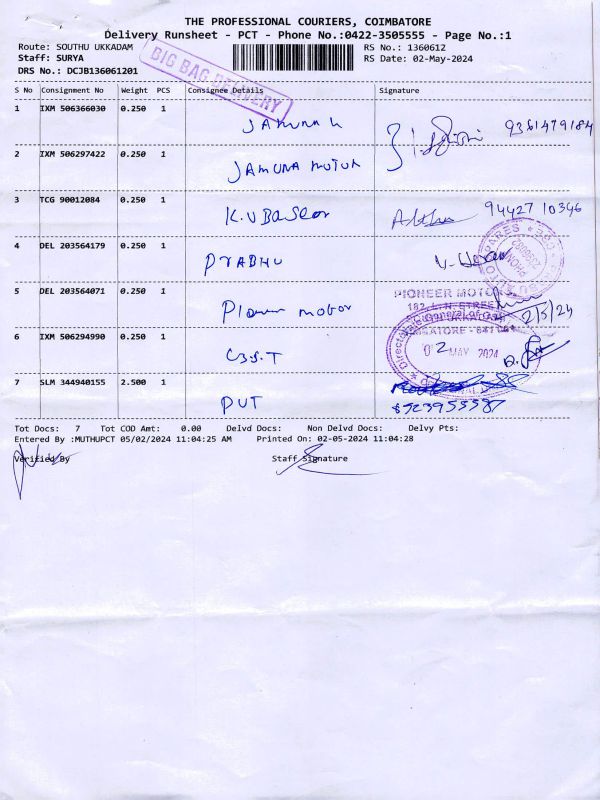 THE PROFESSIONAL COURIERS, COIMBATORE
Delivery Runsheet - PCT - Phone No.:0422-3505555 - Page No.:1
Route: SOUTHU UKKADAM
RS No.: 1360612
Staff: SURYA
RS Date: 02-May-2024
DRS No.: DCJB136061201
BIG BAG DELIVERY
S No Consignment No Weight PCS Consignee Details Signature
1 IXM 506366030 0.250 1 JAMUNA
9361479184
2 IXM 506297422 0.250 1 JAMUNA MOTOR
3 TCG 90012084 0.250 1 K.V Baskar
94427 10346
4 DEL 203564179 0.250 1 PRABHU
5 DEL 203564071 0.250 1 Pioneer motor
PIONEER MOTORS
2/5/24
6 IXM 506294990 0.250 1 C.G.S.T
02 MAY 2024
7 SLM 344940155 2.500 1 PUT
Tot Docs: 7 Tot COD Amt: 0.00 Delvd Docs: Non Delvd Docs: Delvy Pts:
Entered By :MUTHUPCT 05/02/2024 11:04:25 AM Printed On: 02-05-2024 11:04:28
Verified By Staff Signature